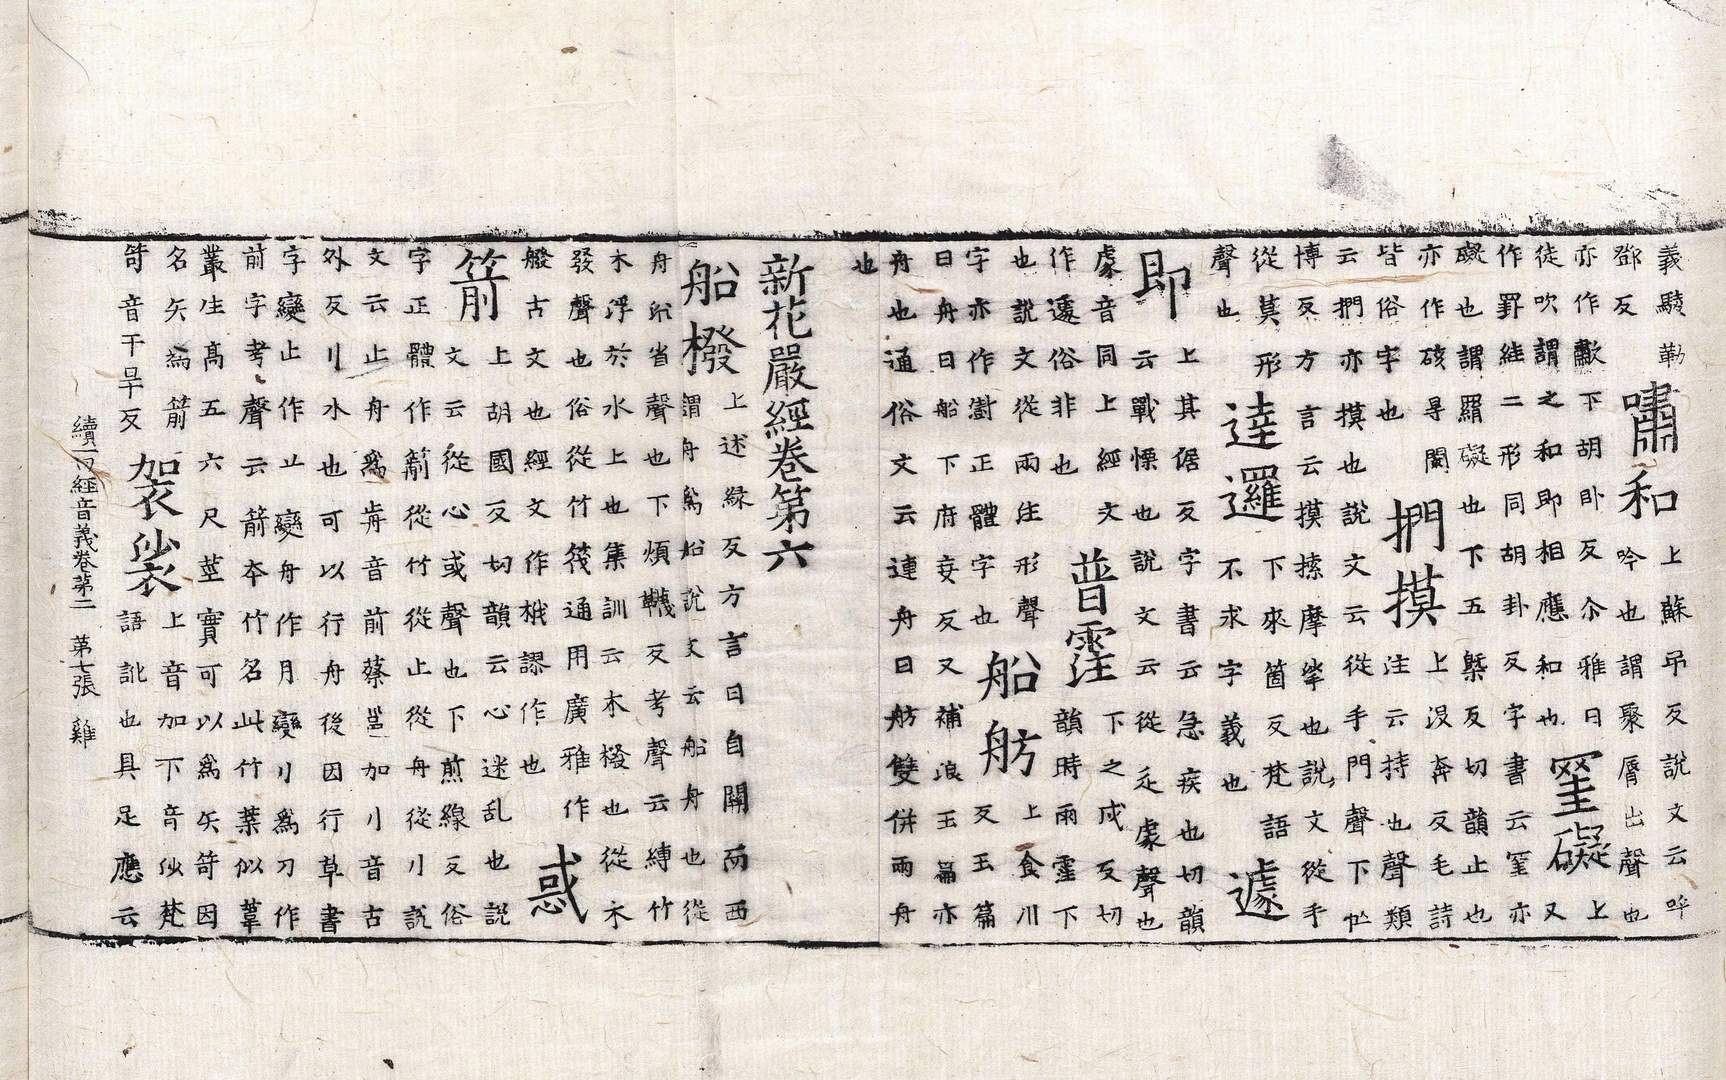 義騣勒
鄧反
嘯和
上蘇吊反說文云吟
吟也謂聚脣出聲也
亦作歗下胡卧反尒雅曰
徒吹謂之和和即相應和也
罣礙
上
又
作罫絓二形同胡卦反字書云罣亦
礙也謂羅礙也下五槩反切韻止也
亦作硋㝵閡
皆俗字也
捫摸
上没奔反毛詩
注云持也聲類
云捫亦摸也說文云從手門聲下忙
博反方言云摸摩挲也說文從手
從莫形
聲也
達邏
下來箇反梵語
不求字義也
遽
即
上其倨反字書云急疾也切韻
云戰慄也說文云從辵豦聲也
豦音同上經文
作遽俗非也
普霔
下之戍反切
韻時雨霔下
也說文從雨注形聲
字亦作澍正體字也
船舫
上食川
反玉篇
曰舟曰船下府妄反又補浪玉篇亦
舟也通俗文云連舟曰舫雙併兩舟
也
新花嚴經卷第六
船橃
上述緣反方言曰自關而西
謂舟爲船說文云船舟也從
舟㕣省聲也下煩韈反考聲云縛竹
木浮於水上也集訓云木橃也從木
發聲也俗從竹筏通用廣雅作
艐古文也經文作栰謬作也
惑
箭
上胡國反切韻云心迷乱也說
文云從心或聲也下煎線反俗
字正體作箭從竹從止從舟從刂說
文云止舟爲歬音前蔡邕加刂音古
外反刂水也可以行舟後因行草書
字變止作䒑變舟作月變刂爲刀作
前字考聲云箭本竹名此竹葉似葦
叢生高五六尺莖實可以爲矢笴因
名矢爲箭
笴音干旱反
袈裟
上音加下音沙梵
語訛也具足應云
續一切經音義卷第二　第七張　雞